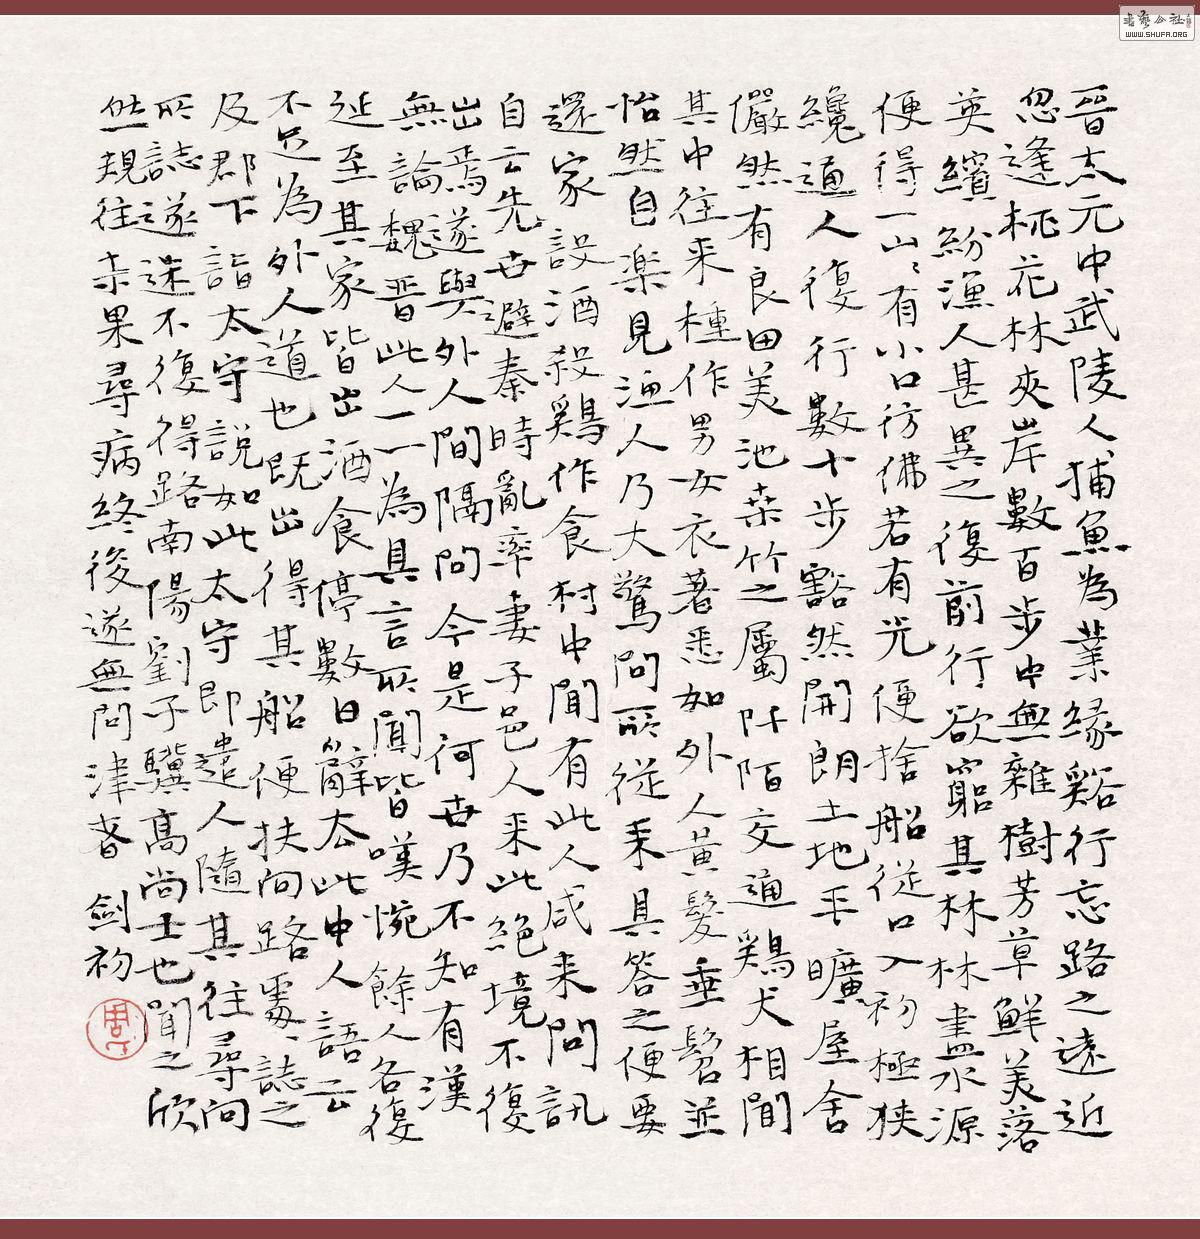 晉太元中武陵人捕魚為業緣谿行忘路之遠近
忽逢桃花林夾岸數百步中無雜樹芳草鮮美落
英繽紛漁人甚異之復前行欲窮其林林盡水源
便得一山〻有小口彷佛若有光便捨船從口入初極狹
纔通人復行數十步豁然開朗土地平曠屋舍
儼然有良田美池桑竹之屬阡陌交通鷄犬相聞
其中往来種作男女衣著悉如外人黃髮垂髫並
怡然自樂見漁人乃大驚問所從来具答之便要
還家設酒殺鷄作食村中聞有此人咸来問訊
自云先世避秦時亂率妻子邑人来此絕境不復
出焉遂與外人間隔問今是何世乃不知有漢
無論魏晉此人一一為具言所聞皆嘆惋餘人各復
延至其家皆出酒食停數日辭去此中人語云
不足為外人道也既出得其船便扶向路處〻誌之
及郡下詣太守說如此太守即遣人隨其往尋向
所誌遂迷不復得路南陽劉子驥高尚士也聞之欣
然規往未果尋病終後遂無問津者 劍初
WWW.SHUFA.ORG